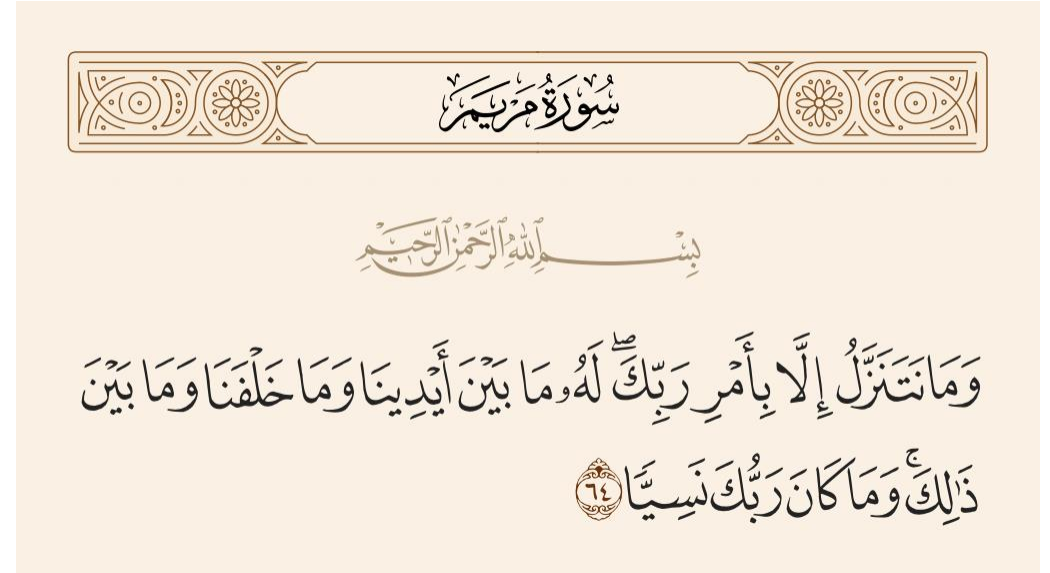 سُورَةُ مَرْيَمَ
بِسْمِ ٱللَّهِ ٱلرَّحْمَٰنِ ٱلرَّحِيمِ
وَمَا نَتَنَزَّلُ إِلَّا بِأَمْرِ رَبِّكَ ۖ لَهُۥ مَا بَيْنَ أَيْدِينَا وَمَا خَلْفَنَا وَمَا بَيْنَ
ذَٰلِكَ ۚ وَمَا كَانَ رَبُّكَ نَسِيًّا ٦٤